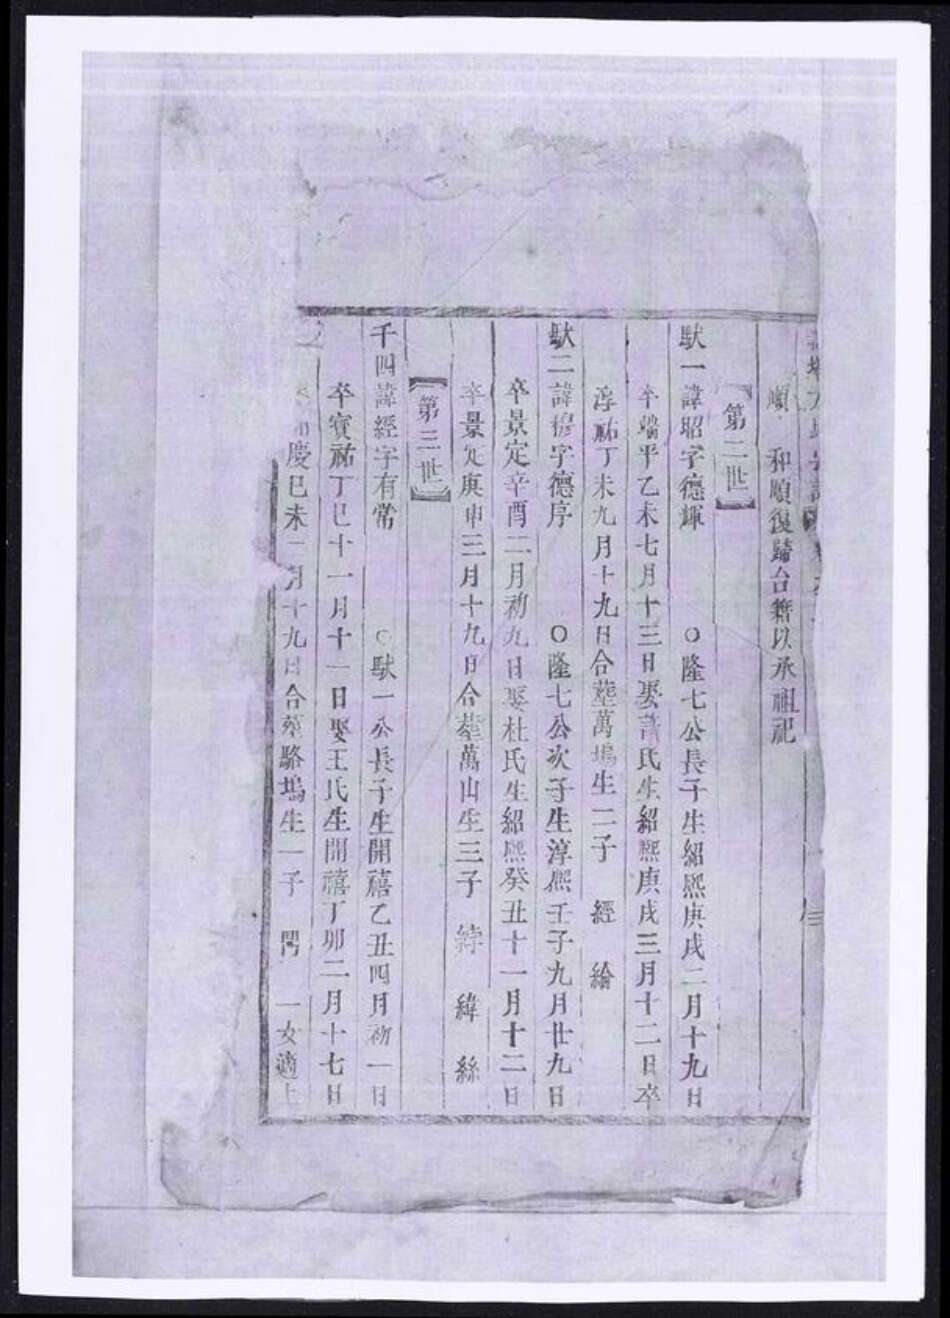 順 和順復歸台籍以承祖祀
【第二世】
馱一諱昭字德輝 ○隆七公長子生紹熙庚戌二月十九日
卒端平乙未七月十三日娶 氏生紹熙庚戌三月十二日卒
淳祐丁未九月十九日合葬萬塢生二子 經 綸
馱二諱穆字德序 ○隆七公次子生淳熙壬子九月廿九日
卒景定辛酉二月初九日娶杜氏生紹熙癸丑十一月十二日
卒景定庚申三月十九日合葬萬山生三子 緯 絲
【第三世】
千四諱經字有常 ○馱一公長子生開禧乙丑四月初一日
卒寶祐丁巳十一月十一日娶王氏生開禧丁卯二月十七日
慶巳未 月十九日合葬駱塢生一子 一女適上